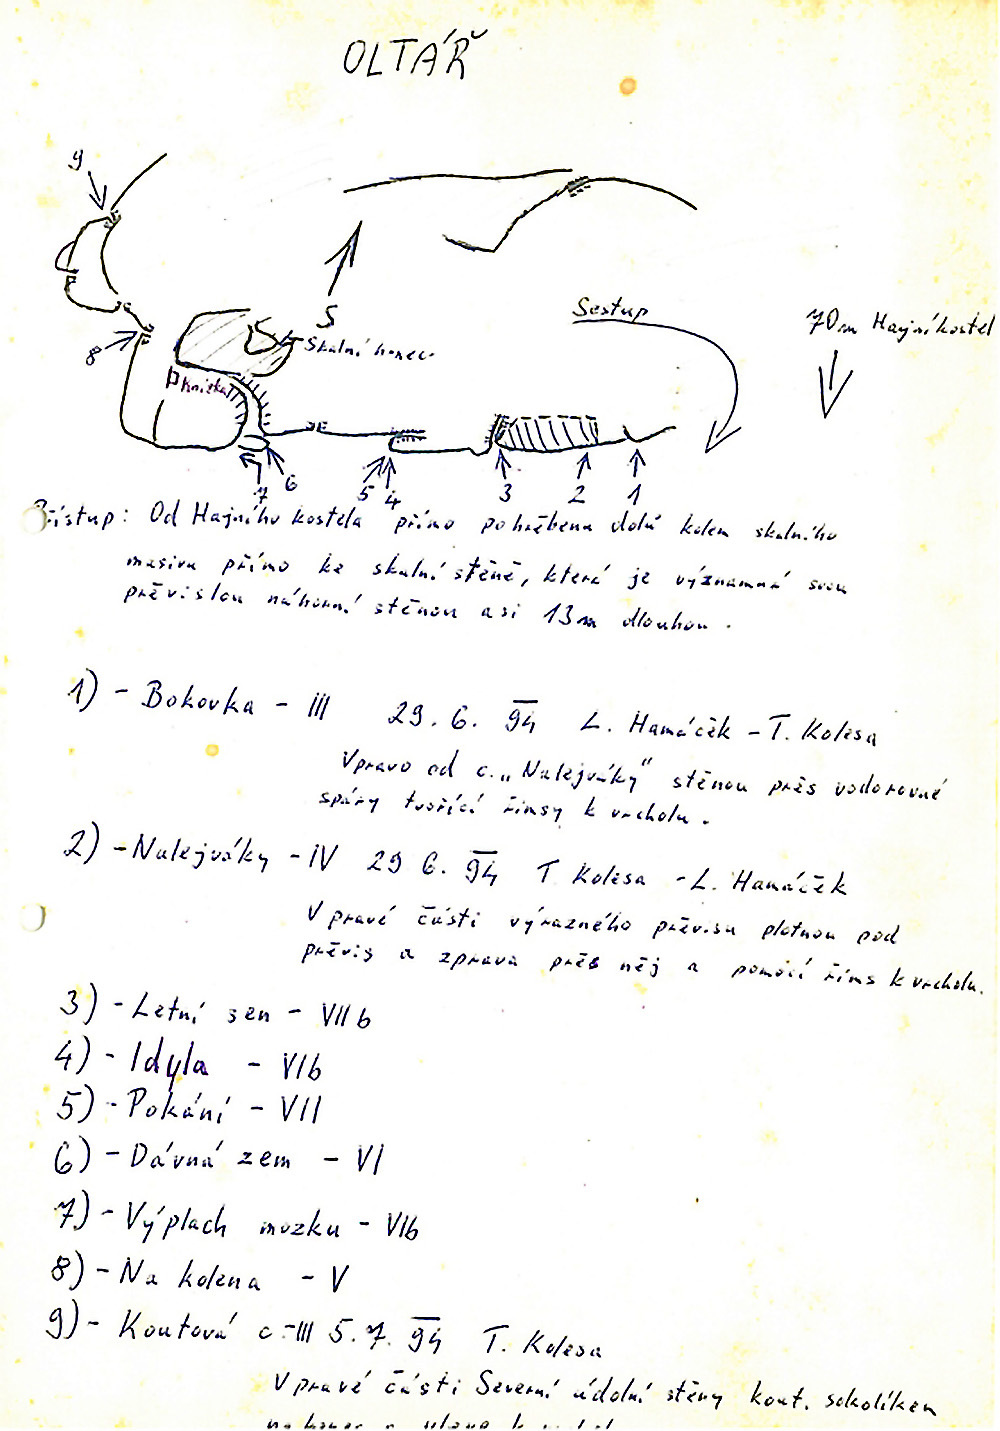 OLTÁŘ
9
S
Sestup
70m Hajní kostel
8
Skalní
Knížka
7 6 5 4 3 2 1
Přístup: Od Hajního kostela přímo po hřebenu dolů kolem skalního
masivu přímo ke skalní stěně, která je významná svou
převislou náhorní stěnou asi 13m dlouhou.
1) - Bokovka - III 29. 6. 94 L. Hamáček - T. Kolesa
Vpravo od c. „Nalejváky" stěnou přes vodorovné
spáry tvořící římsy k vrcholu.
2) - Nalejváky - IV 29 6. 94 T Kolesa - L. Hamáček
V pravé části výrazného převisu plotnou pod
převis a zprava přes něj a pomocí říms k vrcholu.
3) - Letní sen - VIIb
4) - Idyla - VIb
5) - Pokání - VII
6) - Dávná zem - VI
7) - Výplach mozku - VIIb
8) - Na kolena - V
9) - Koutová c - III 5. 7. 94 T. Kolesa
V pravé části Severní údolní stěny kout. sokolíkem